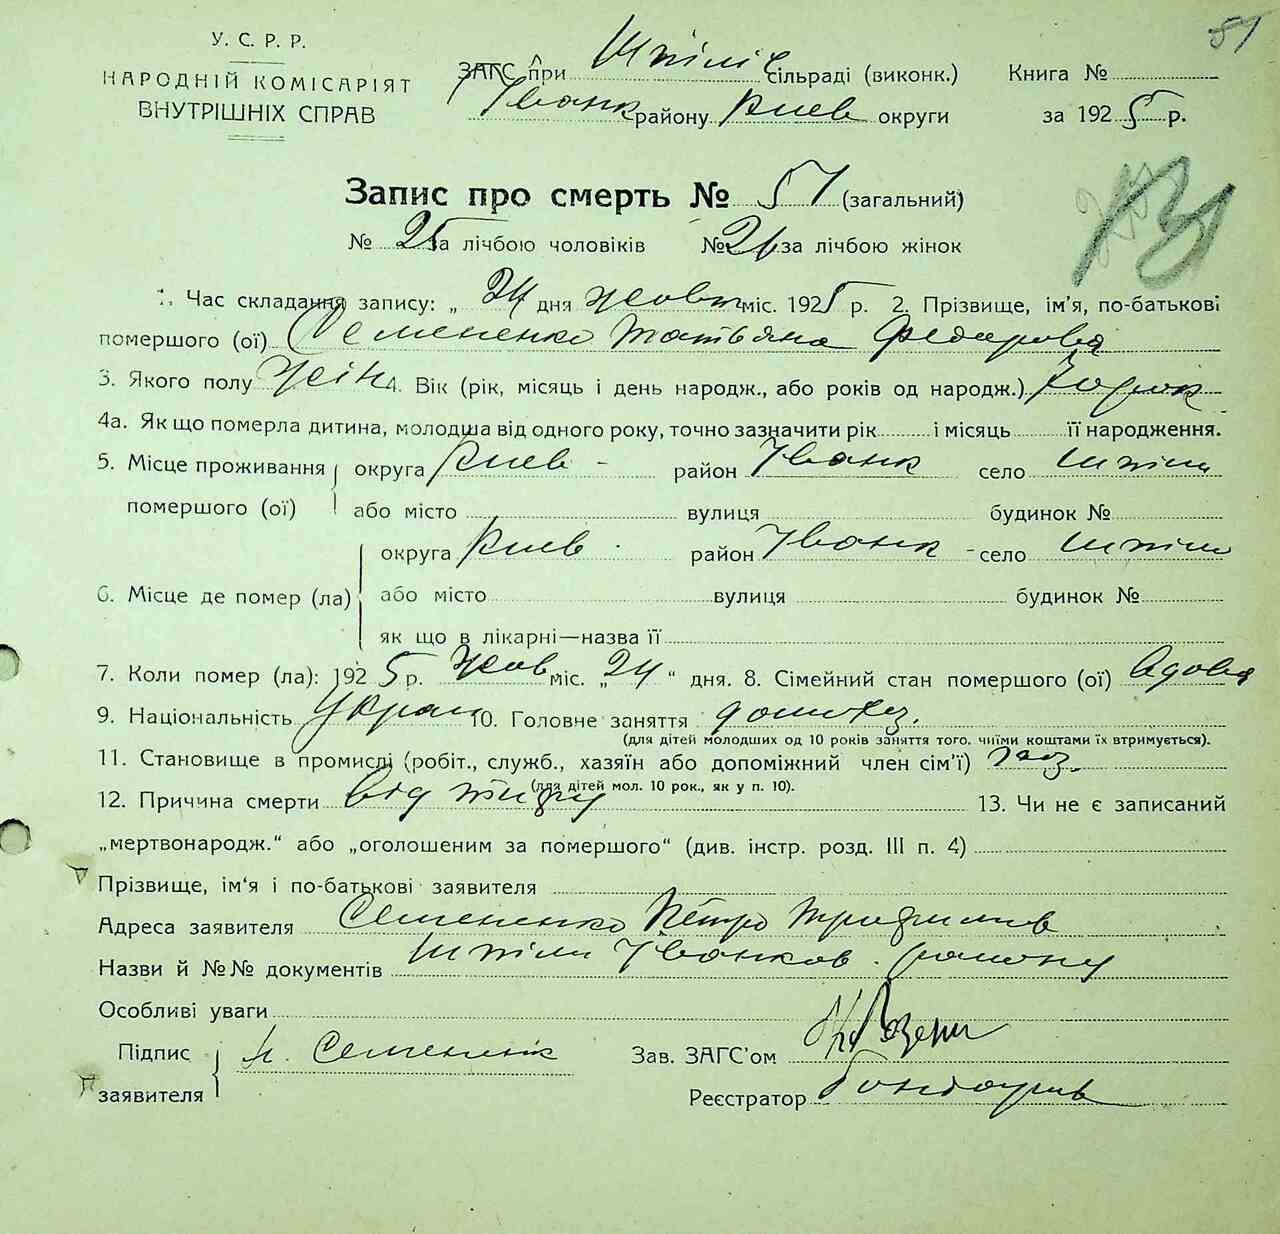 51
У. С. Р. Р.
НАРОДНІЙ КОМІСАРІЯТ
ВНУТРІШНІХ СПРАВ
ЗАГС при Шпілів сільраді (виконк.)
Іванк району Киев округи
Книга №
за 1925 р.
Запис про смерть № 51 (загальний)
№ 25 за лічбою чоловіків № 26 за лічбою жінок
1. Час складання запису: „ 24 дня жовт міс. 1925 р. 2. Прізвище, ім'я, по-батькові
помершого (ої) Семененко Татьяна Федорова
3. Якого полу жін 4. Вік (рік, місяць і день народж., або років од народж.)
4а. Як що померла дитина, молодша від одного року, точно зазначити рік і місяць її народження.
5. Місце проживання округа Киев район Іванк село Шпіли
помершого (ої) або місто вулиця будинок №
округа Киев район Іванк село Шпіли
6. Місце де помер (ла) або місто вулиця будинок №
як що в лікарні—назва її
7. Коли помер (ла): 1925 р. жов міс. „24“ дня. 8. Сімейний стан помершого (ої) вдова
9. Національність Украп 10. Головне заняття домохоз.
(для дітей молодших од 10 років заняття того, чиїми коштами їх втримується).
11. Становище в промислі (робіт., служб., хазяїн або допоміжний член сім'ї) хаз.
(для дітей мол. 10 рок., як у п. 10).
12. Причина смерти від тифу 13. Чи не є записаний
„мертвонародж.“ або „оголошеним за помершого“ (див. інстр. розд. III п. 4)
Прізвище, ім'я і по-батькові заявителя
Адреса заявителя Семененко Петро Трофимов
Назви й №№ документів Шпіли Іванков. району
Особливі уваги
Підпис
заявителя П. Семененк
Зав. ЗАГС'ом
Реєстратор